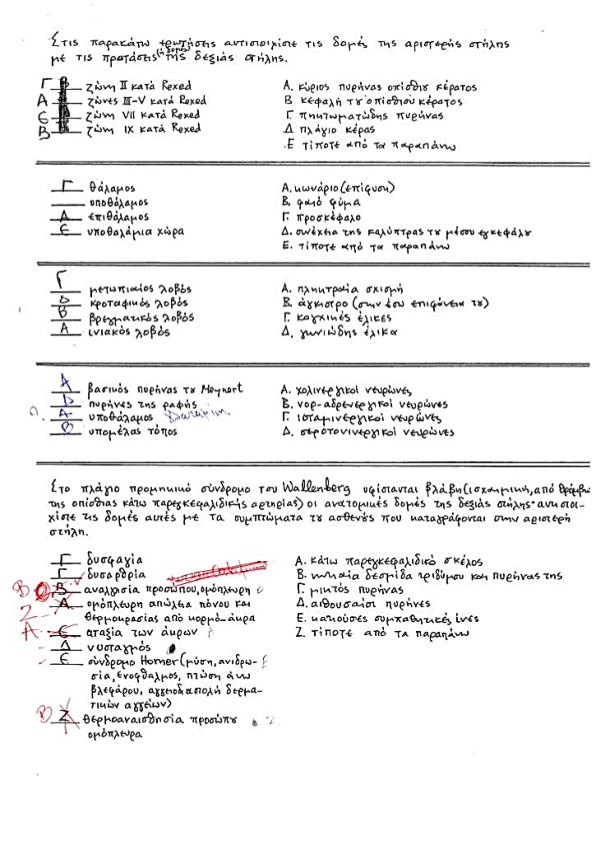 Στις παρακάτω ερωτήσεις αντιστοιχίσε τις δομές της αριστερής στήλης
με τις προτάσεις (ή δομές) της δεξιάς στήλης.
Γ ζώνη II κατά Rexed Α. κύριος πυρήνας οπίσθιου κέρατος
Α ζώνες III-V κατά Rexed Β κεφαλή του οπίσθιου κέρατος
Ε ζώνη VII κατά Rexed Γ πηκτωματώδης πυρήνας
Β ζώνη IX κατά Rexed Δ πλάγιο κέρας
Ε τίποτε από τα παραπάνω
Γ θάλαμος Α. κωνάριο (επίφυση)
υποθάλαμος Β. φαιό φύμα
Α επιθάλαμος Γ. προσκέφαλο
Ε υποθαλάμια χώρα Δ. συνέχεια της καλύπτρας του μέσου εγκεφάλου
Ε. τίποτε από τα παραπάνω
Γ μετωπιαίος λοβός Α. πληκτραία σχισμή
D κροταφικός λοβός Β. άγκιστρο (στην έσω επιφάνεια του)
Β βρεγματικός λοβός Γ. κογχικές έλικες
Α ινιακός λοβός Δ. γωνιώδης έλικα
Α βασικός πυρήνας του Meynert Α. χολινεργικοί νευρώνες
D πυρήνες της ραφής Β. νορ-αδρενεργικοί νευρώνες
Α υποθάλαμος Γ. ισταμινεργικοί νευρώνες
Β υπομέλας τόπος Δ. σεροτονινεργικοί νευρώνες
Στο πλάγιο προμηκικό σύνδρομο του Wallenberg υφίστανται βλάβη (ισχαιμική, από θρόμβωση
της οπίσθιας κάτω παρεγκεφαλιδικής αρτηρίας) οι ανατομικές δομές της δεξιάς στήλης· αντιστοι-
χίσε τις δομές αυτές με τα συμπτώματα του ασθενούς που καταγράφονται στην αριστερή
στήλη.
Γ δυσφαγία Α. κάτω παρεγκεφαλιδικό σκέλος
Γ δυσαρθρία Β. νωτιαία δεσμίδα τριδύμου και πυρήνας της
Β Β αναλγησία προσώπου, ομόπλευρη Γ. μικτός πυρήνας
Ζ Α ομόπλευρη απώλεια πόνου και Δ. αιθουσαίοι πυρήνες
θερμοκρασίας από κορμό-άκρα Ε. κατιούσες συμπαθητικές ίνες
Α Ε αταξία των άκρων Ζ. τίποτε από τα παραπάνω
Δ νυσταγμός
Ε σύνδρομο Horner (μύση, ανιδρω-
σία, ενόφθαλμος, πτώση άνω
βλεφάρου, αγγειοδιαστολή δερμα-
τικών αγγείων)
Β Ζ θερμοαναισθησία προσώπου
ομόπλευρα